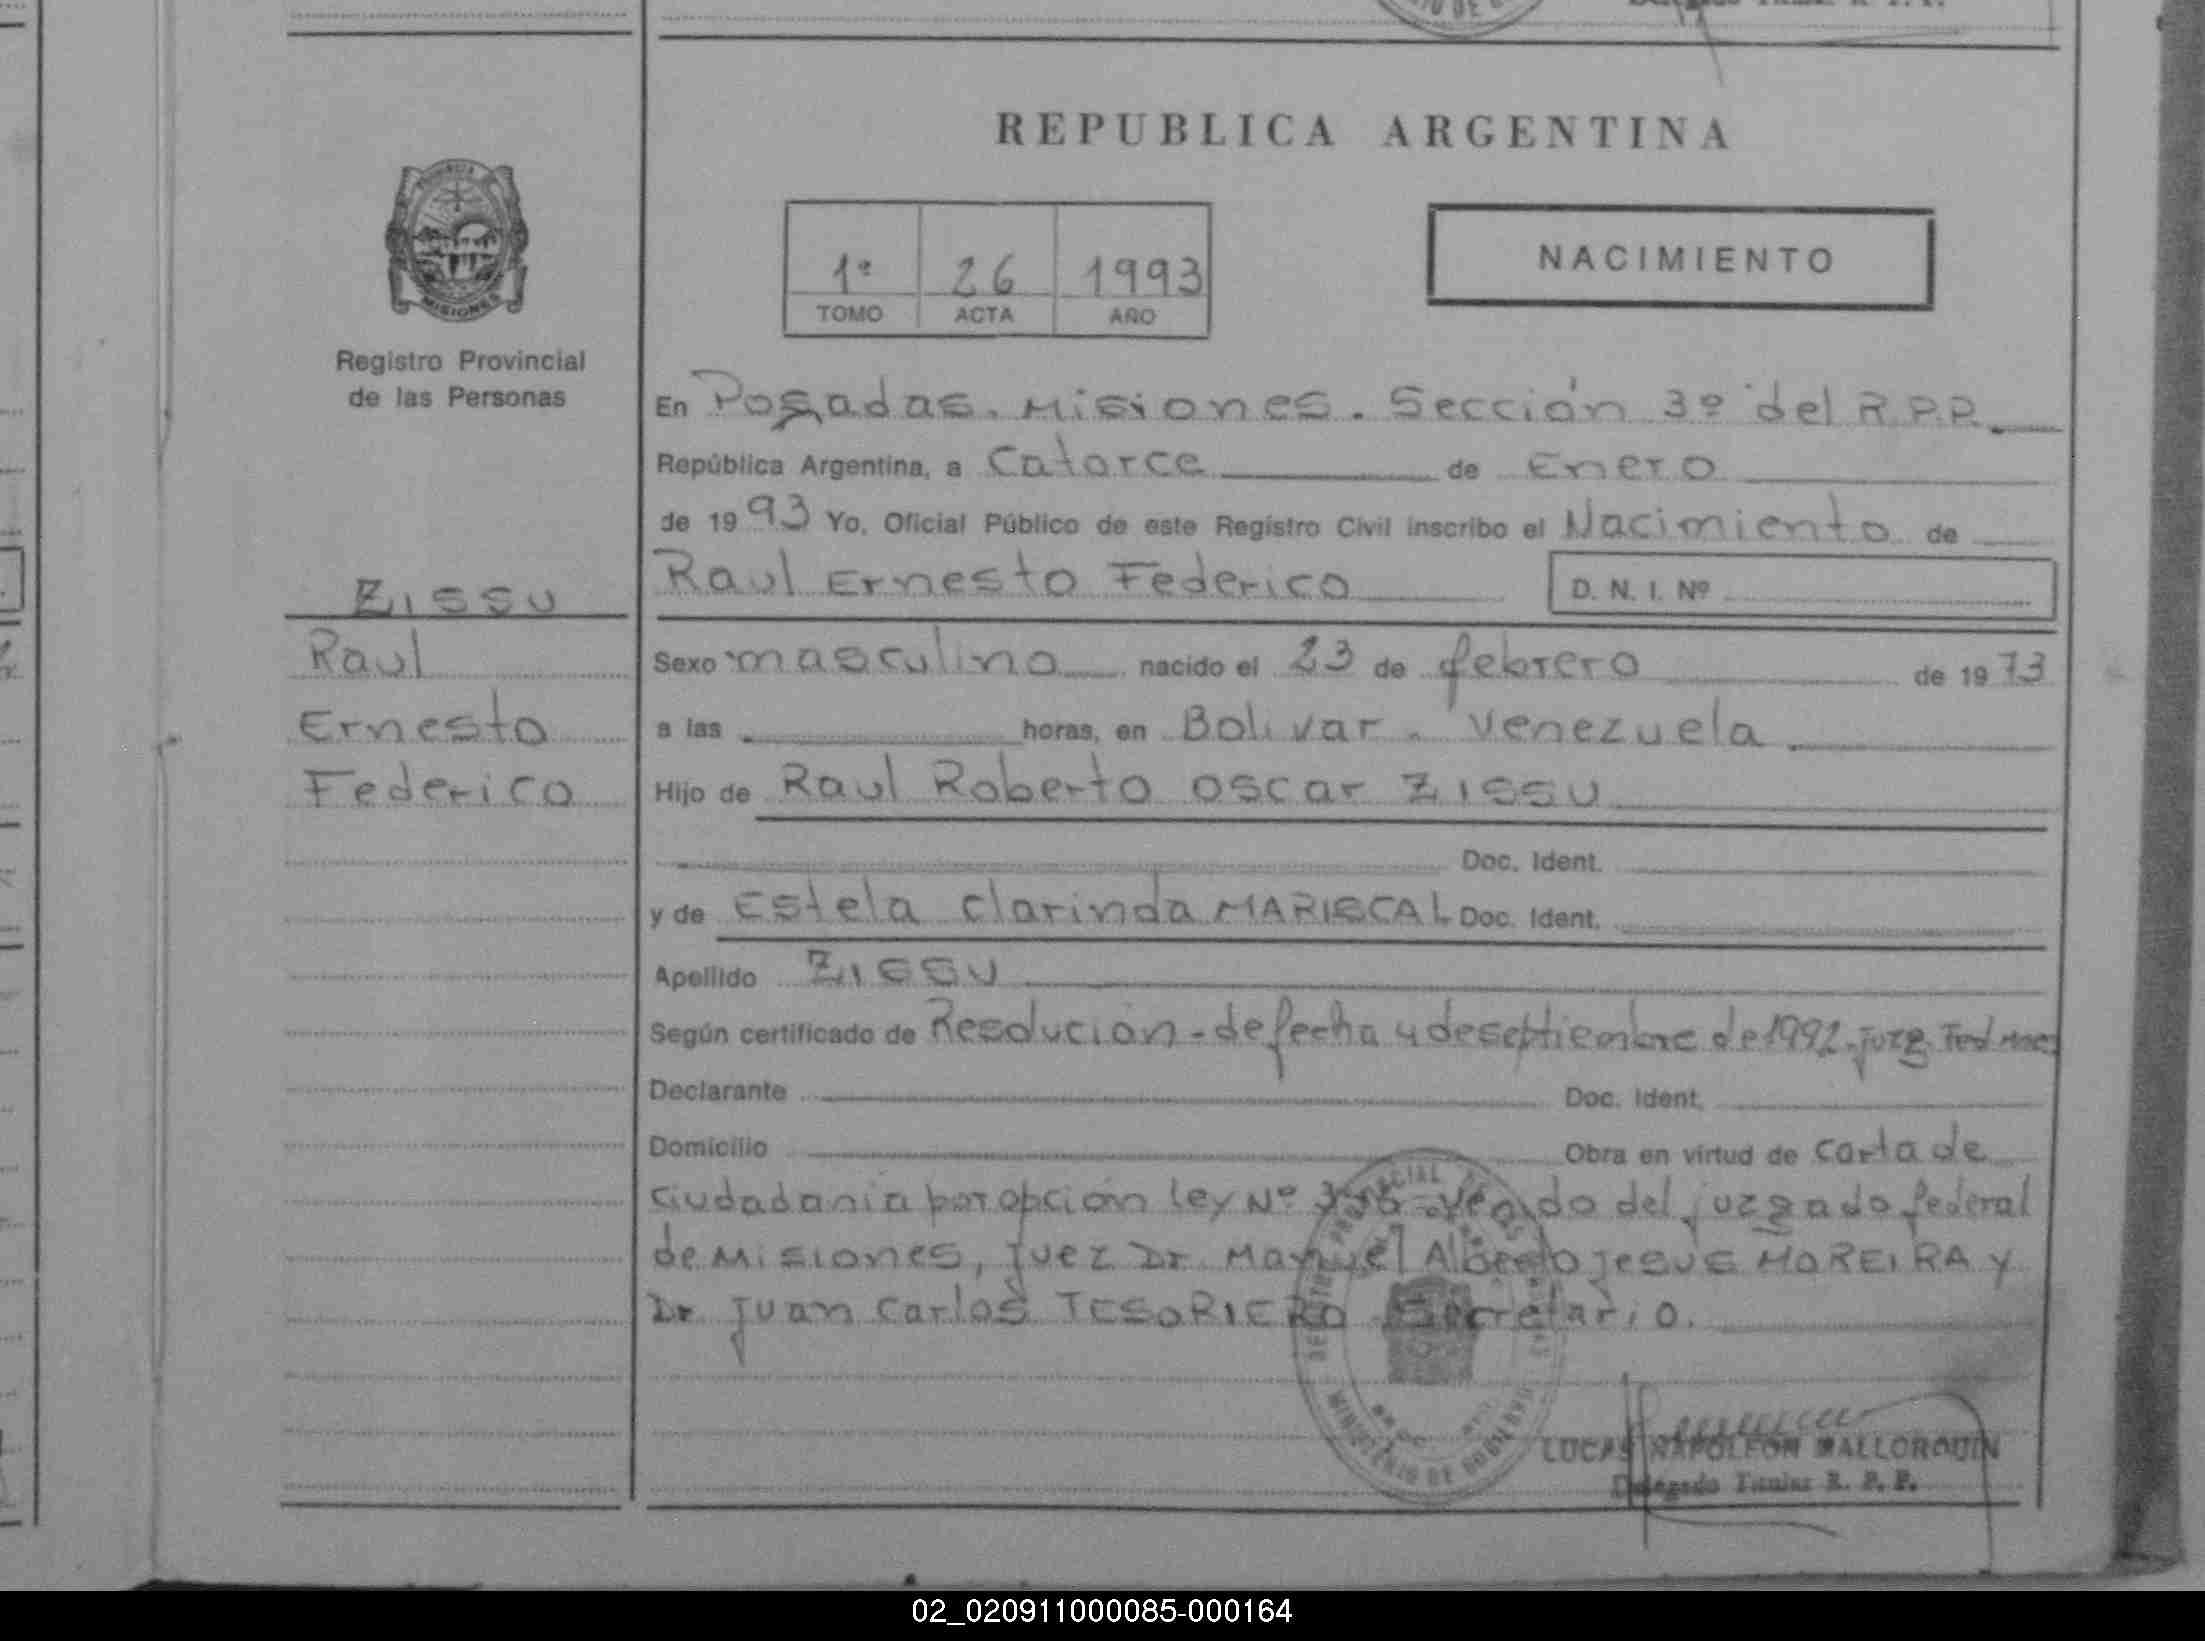 REPUBLICA ARGENTINA
PROVINCIA
MISIONES
Registro Provincial
de las Personas
1º 26 1993
TOMO ACTA AÑO
NACIMIENTO
ZISSU
Raul
Ernesto
Federico
En Posadas. Misiones. Sección 3º del R.P.P.
República Argentina, a Catorce de Enero
de 1993 Yo, Oficial Público de este Registro Civil inscribo el Nacimiento de
Raul Ernesto Federico D. N. I. Nº
Sexo masculino nacido el 23 de febrero de 1973
a las horas, en Bolivar. Venezuela
Hijo de Raul Roberto Oscar ZISSU
Doc. Ident.
y de Estela Clarinda MARISCAL Doc. Ident.
Apellido ZISSU
Según certificado de Resolución - de fecha 4 de septiembre de 1992. Juzg. Fed
Declarante Doc. Ident.
Domicilio Obra en virtud de carta de
ciudadania por opción ley Nº del juzgado federal
de Misiones, Juez Dr. Manuel Alberto Jesus MOREIRA y
Dr Juan Carlos TESORIERO Secretario.
MINISTERIO DE GOBIERNO
LUCAS NAPOLEON MALLORQUIN
Delegado Titular R. P. P.
02_020911000085-000164